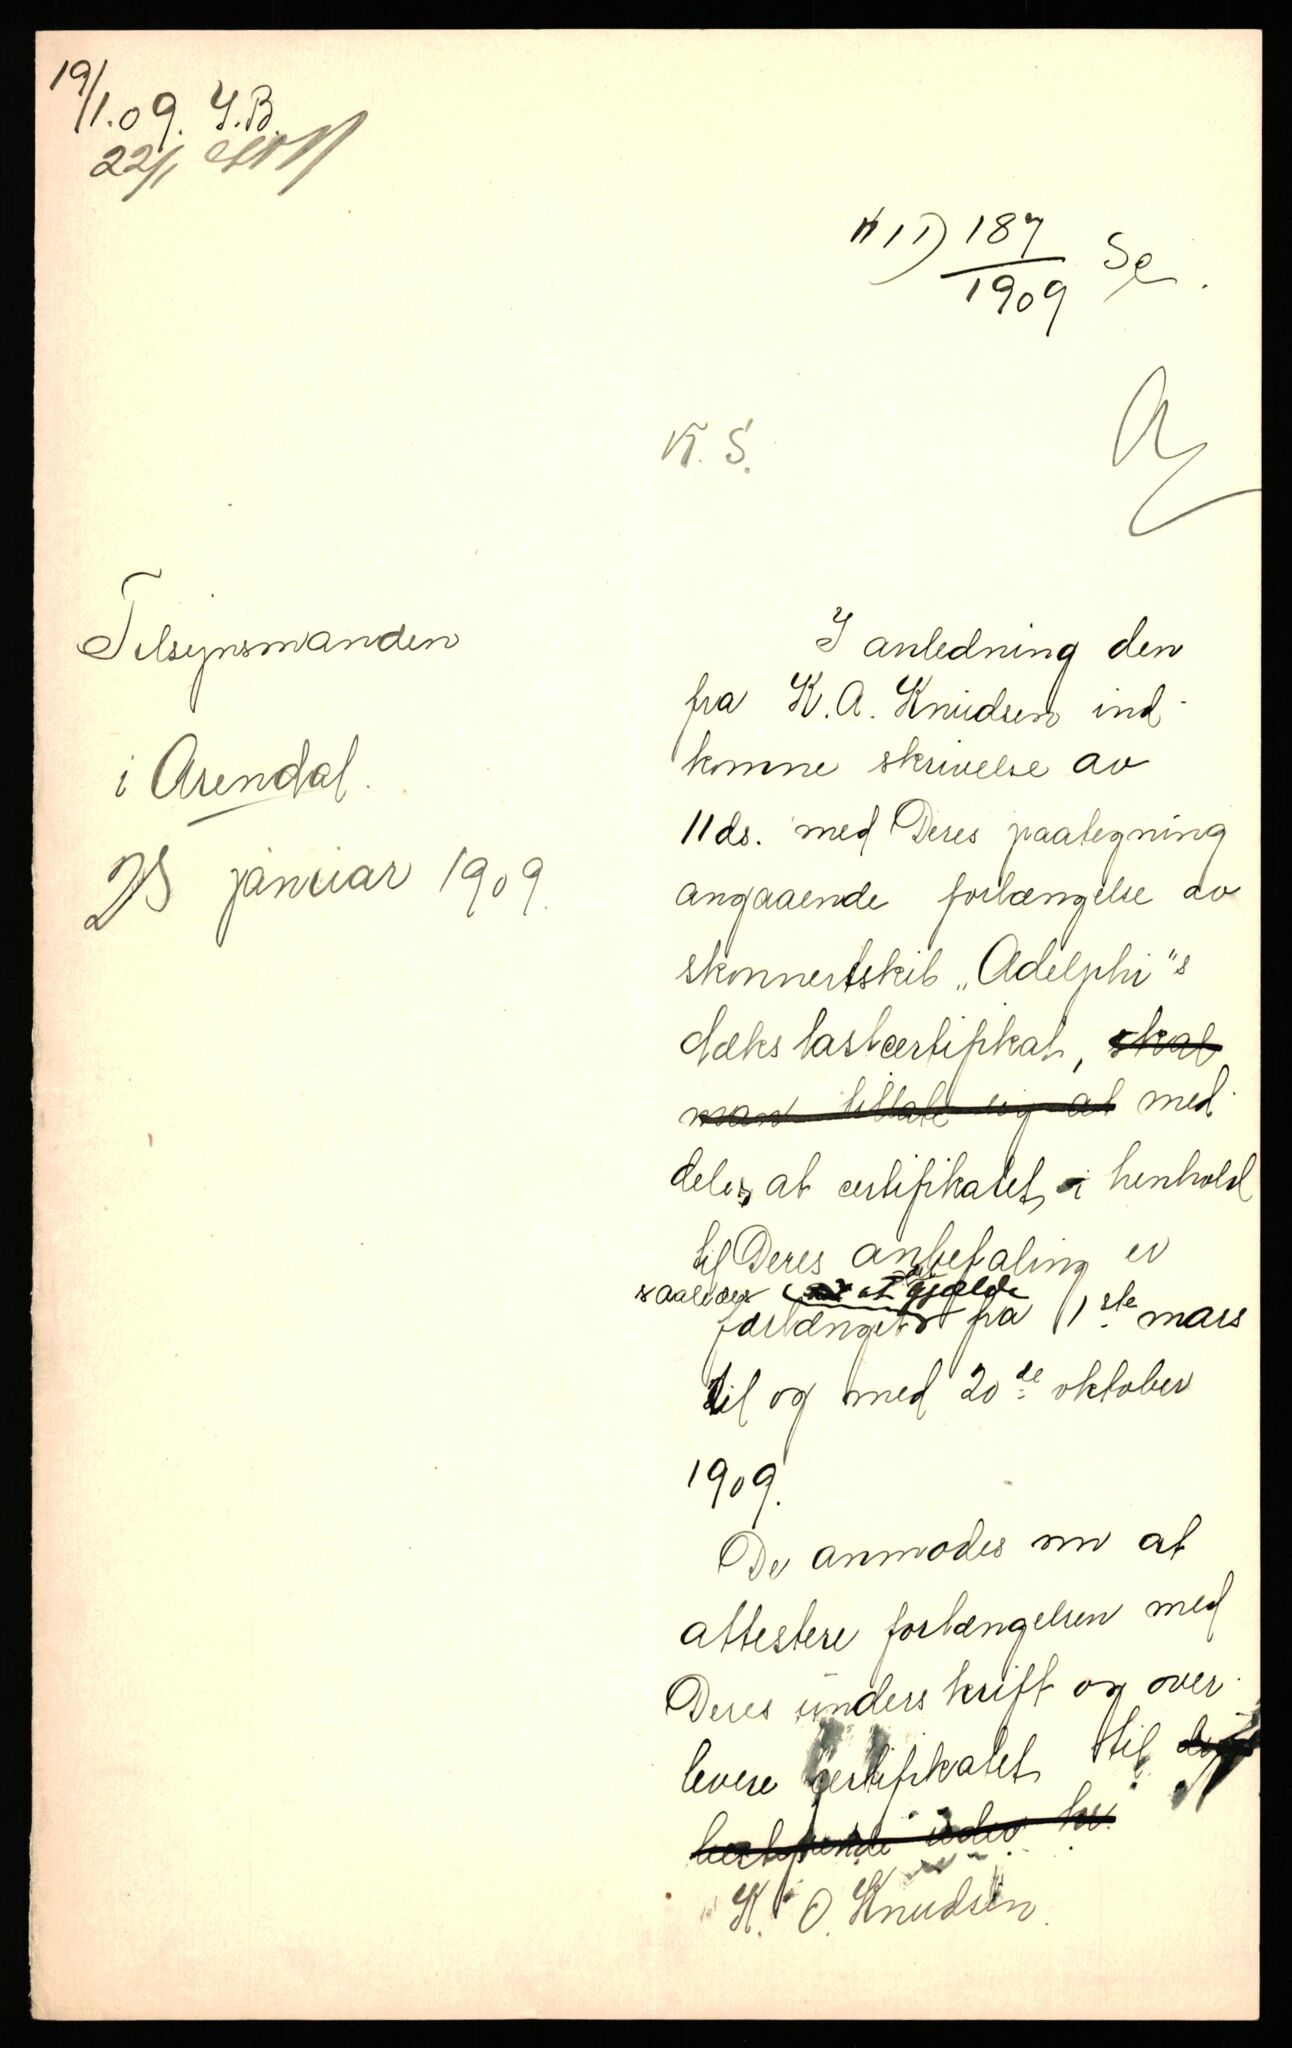 19/1.09. Y.B.
22/1
187/1909 Se.
K. S.
Tilsynsmanden
i Arendal.
23 januar 1909.
I anledning den
fra K. A. Knudsen ind-
komne skrivelse av
11 ds. med Deres paategning
angaaende forlængelse av
skonnertskib „Adelphi"s
dækslastcertifikat, skal
man tillate sig at med-
deles, at certifikatet, i henhold
til Deres anbefaling er
saaledes at gjælde
forlænget fra 1ste mars
til og med 20de oktober
1909.
De anmodes om at
attestere forlængelsen med
Deres underskrift og over-
levere certifikatet til
K. O. Knudsen.